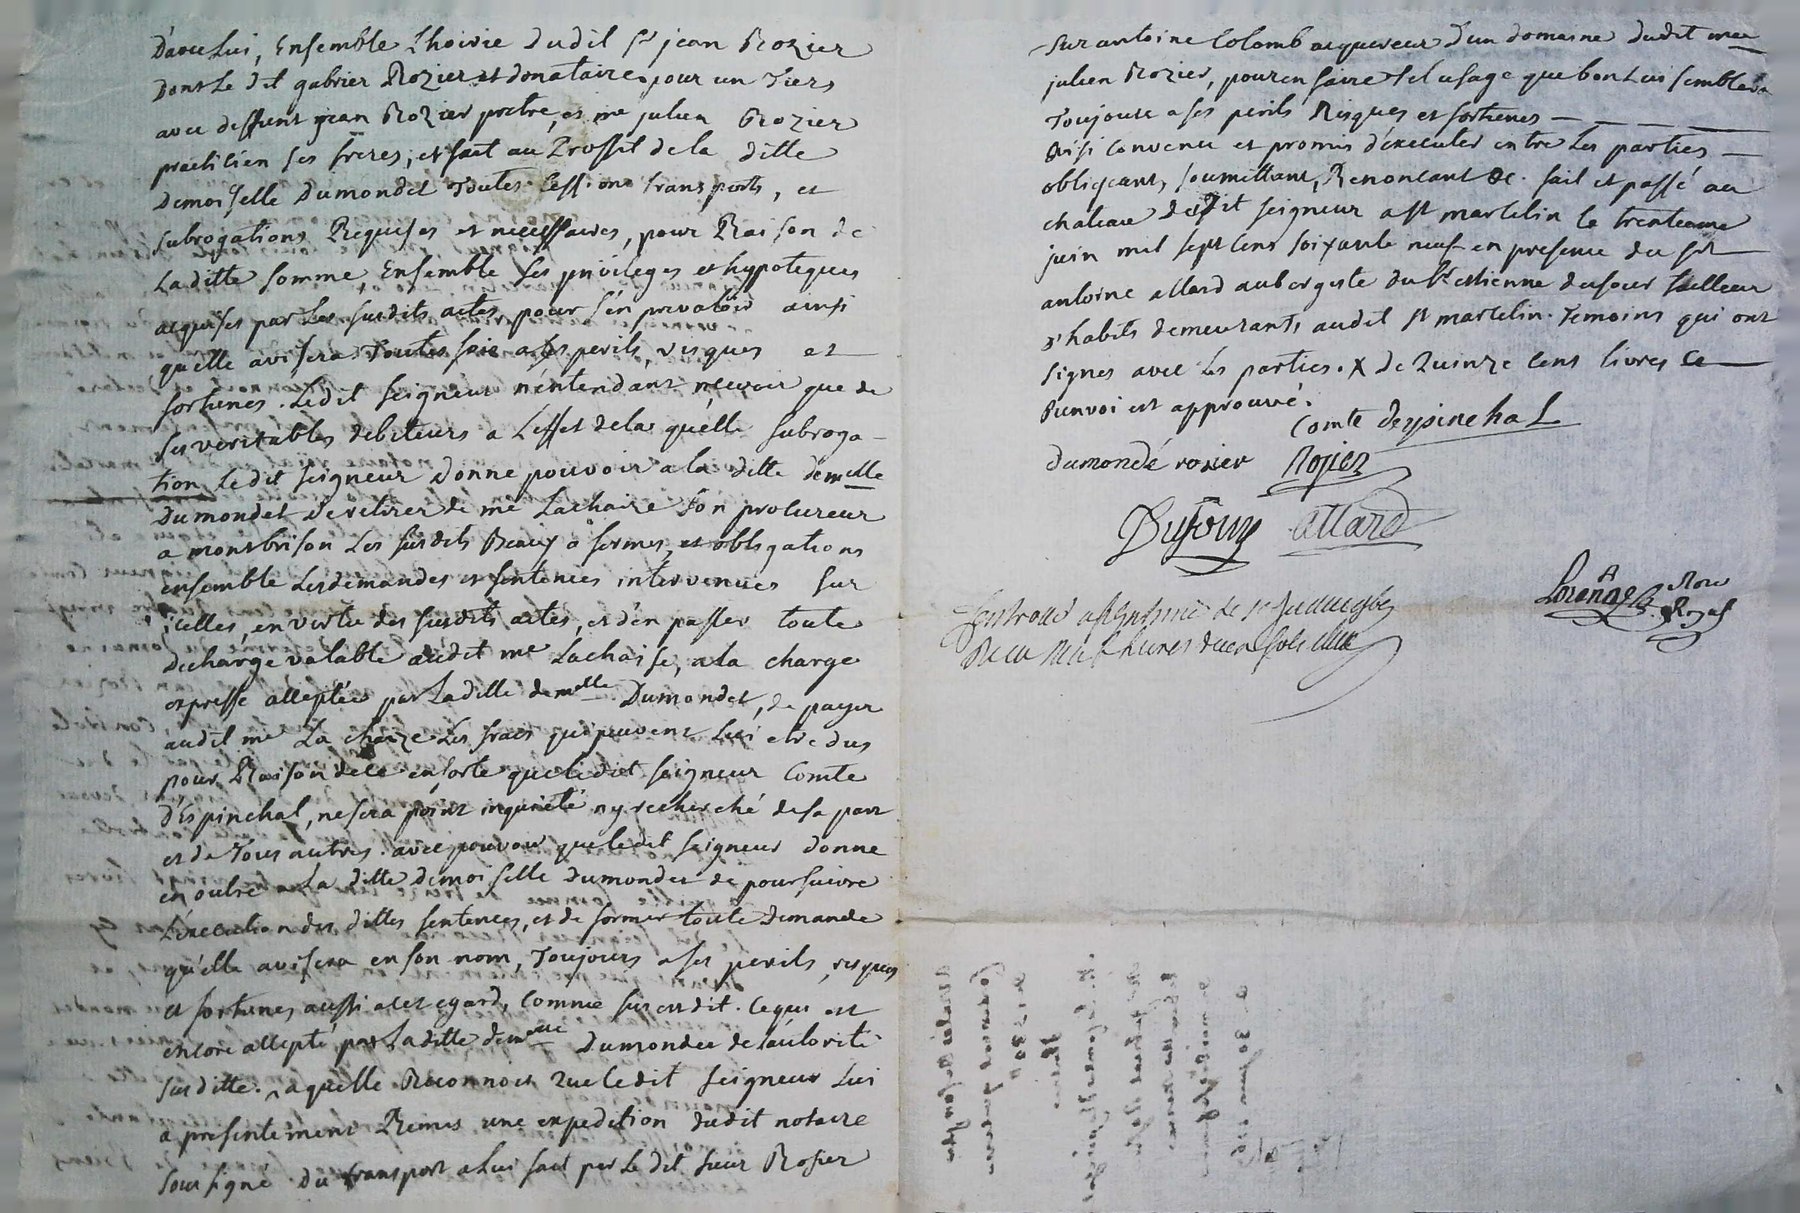 D'avec Lui, Ensemble L'hoirie dudit Sr jean Rozier
Dont Le dit gabriel Rozier est donataire pour un Tiers
avec deffunt jean Rozier pretre, et me julien Rozier
praticien ses freres, et fait au Proffit de la ditte
Demoiselle Dumondet Toutes Cessions transports, et
subrogations Requises et necessaires, pour Raison de
La ditte somme, Ensemble ses privileges et hypoteques
acquises par Les susdits actes pour s'en prevaloir ainsi
qu'elle avisera Toutes fois a ses perils, risques et
fortunes. Ledit seigneur n'entendant recevoir que de
ses veritables debiteurs a L'effet de laquelle subroga-
tion ledit seigneur donne pouvoir a la ditte demelle
Dumondet de retirer de me Lachaize son procureur
a montbrison Les susdits Beaux a fermes, et obligations
ensemble Les demandes et sentences intervenues sur
icelles, en vertu des susdits actes, et d'en passer toute
decharge valable audit me Lachaise, a la charge
expresse acceptée par Laditte demelle Dumondet, de payer
audit me La chaize Les frais qui peuvent Lui etre dus
pour Raison de ce en sorte que ledit seigneur Comte
d'Espinchal, ne sera point inquieté ny recherché de sa part
et de Tous autres. avec pouvoir que ledit seigneur donne
en outre a La ditte demoiselle Dumondet de poursuivre
L'execution des dittes sentences, et de former toute Demande
qu'elle avisera en son nom, Toujours a ses perils, risques
et fortunes aussi a cet egard, Comme sus est dit. Ce qui est
encore accepté par Laditte demelle Dumondet de l'autorité
susditte. aquelle Reconnoit que ledit seigneur Lui
a presentement Remis une expedition dudit notaire
soussigné du transport a Lui fait par Le dit sieur Rosier
sur antoine Colomb acquereur d'un domaine dudit me
julien Rozier, pour en faire tel usage que bon Lui semblera
Toujours a ses perils Risques et fortunes
Ainsi Convenu et promis d'executer entre Les parties
obligeants, soumettant, Renoncant &c. fait et passé au
chateau dudit seigneur a St marcelin le trentieme
juin mil sept cens soixante neuf en presence du sr
antoine allard aubergiste du sr etienne dufour tailleur
d'habits demeurants audit St marcelin Temoins qui ont
signes avec Les parties. X de Quinze Cens livres Ce
Renvoi est approuvé.
Comte despinchal
dumondé rozier Rozier
Dufour allard